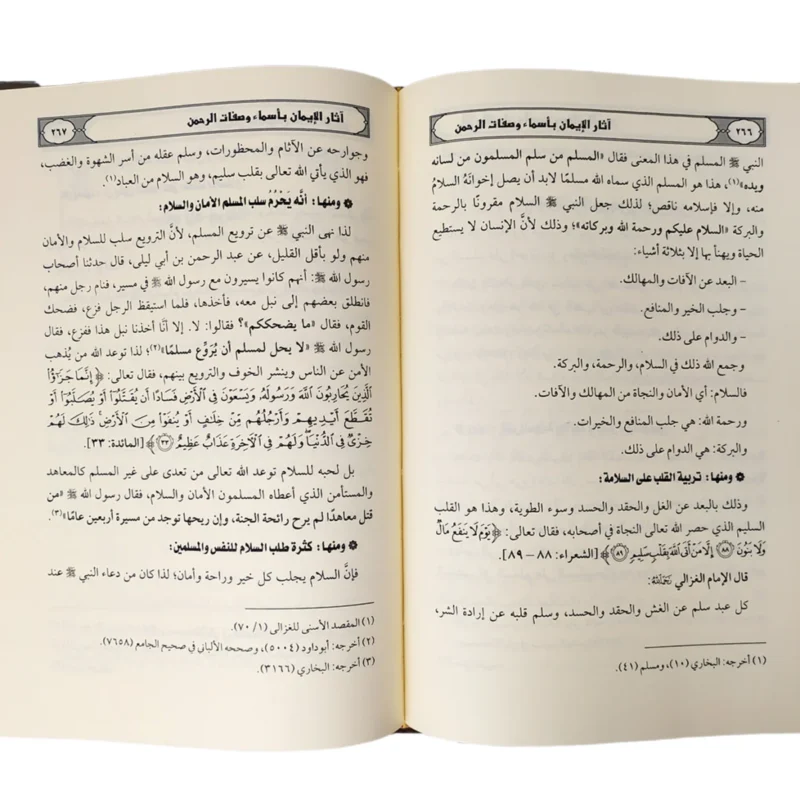 آثار الإيمان بأسماء وصفات الرحمن
٢٦٦
النبي ﷺ المسلم في هذا المعنى فقال «المسلم من سلم المسلمون من لسانه
ويده»(١)، هذا هو المسلم الذي سماه الله مسلمًا لابد أن يصل إخوانَهُ السلامُ
منه، وإلا فإسلامه ناقص؛ لذلك جعل النبي ﷺ السلام مقرونًا بالرحمة
والبركة «السلام عليكم ورحمة الله وبركاته»؛ وذلك لأنَّ الإنسان لا يستطيع
الحياة ويهنأ بها إلا بثلاثة أشياء:
- البعد عن الآفات والمهالك.
- وجلب الخير والمنافع.
- والدوام على ذلك.
وجمع الله ذلك في السلام، والرحمة، والبركة.
فالسلام: أي الأمان والنجاة من المهالك والآفات.
ورحمة الله: هي جلب المنافع والخيرات.
والبركة: هي الدوام على ذلك.
۞ ومنها: تربية القلب على السلامة:
وذلك بالبعد عن الغل والحقد والحسد وسوء الطوية، وهذا هو القلب
السليم الذي حصر الله تعالى النجاة في أصحابه، فقال تعالى: ﴿يَوْمَ لَا يَنفَعُ مَالٌ
وَلَا بَنُونَ ۝٨٨ إِلَّا مَنْ أَتَى اللَّهَ بِقَلْبٍ سَلِيمٍ ۝٨٩﴾ [الشعراء: ٨٨ – ٨٩].
قال الإمام الغزالي رَحِمَهُ اللَّهُ:
كل عبد سلم عن الغش والحقد والحسد، وسلم قلبه عن إرادة الشر،
(١) أخرجه: البخاري (١٠)، ومسلم (٤١).
آثار الإيمان بأسماء وصفات الرحمن
٢٦٧
وجوارحه عن الآثام والمحظورات، وسلم عقله من أسر الشهوة والغضب،
فهو الذي يأتي الله تعالى بقلب سليم، وهو السلام من العباد(١).
۞ ومنها: أنَّه يَحْرُمُ سلب المسلم الأمان والسلام:
لذا نهى النبي ﷺ عن ترويع المسلم، لأنَّ الترويع سلب للسلام والأمان
منهم ولو بأقل القليل، عن عبد الرحمن بن أبي ليلى، قال حدثنا أصحاب
رسول الله ﷺ: أنهم كانوا يسيرون مع رسول الله ﷺ في مسير، فنام رجل منهم،
فانطلق بعضهم إلى نبل معه، فأخذها، فلما استيقظ الرجل فزع، فضحك
القوم، فقال «ما يضحككم»؟ فقالوا: لا. إلا أنَّا أخذنا نبل هذا ففزع، فقال
رسول الله ﷺ «لا يحل لمسلم أن يُرَوِّع مسلمًا»(٢)؛ لذا توعد الله من يُذهب
الأمن عن الناس وينشر الخوف والترويع بينهم، فقال تعالى: ﴿إِنَّمَا جَزَٰٓؤُاْ
الَّذِينَ يُحَارِبُونَ اللَّهَ وَرَسُولَهُ وَيَسْعَوْنَ فِي الْأَرْضِ فَسَادًا أَن يُقَتَّلُوٓاْ أَوْ يُصَلَّبُوٓاْ أَوْ
تُقَطَّعَ أَيْدِيهِمْ وَأَرْجُلُهُم مِّنْ خِلَافٍ أَوْ يُنفَوْا مِنَ الْأَرْضِ ذَٰلِكَ لَهُمْ
خِزْيٌ فِي الدُّنْيَا وَلَهُمْ فِي الْآخِرَةِ عَذَابٌ عَظِيمٌ ۝٣٣﴾ [المائدة: ٣٣].
بل لحبه للسلام توعد الله تعالى من تعدى على غير المسلم كالمعاهد
والمستأمن الذي أعطاه المسلمون الأمان والسلام، فقال رسول الله ﷺ «من
قتل معاهدًا لم يرح رائحة الجنة، وإن ريحها توجد من مسيرة أربعين عامًا»(٣).
۞ ومنها: كثرة طلب السلام للنفس والمسلمين:
فإنَّ السلام يجلب كل خير وراحة وأمان؛ لذا كان من دعاء النبي ﷺ عند
(١) المقصد الأسنى للغزالي (١/ ٧٠).
(٢) أخرجه: أبوداود (٥٠٠٤)، وصححه الألباني في صحيح الجامع (٧٦٥٨)
(٣) أخرجه: البخاري (٣١٦٦).